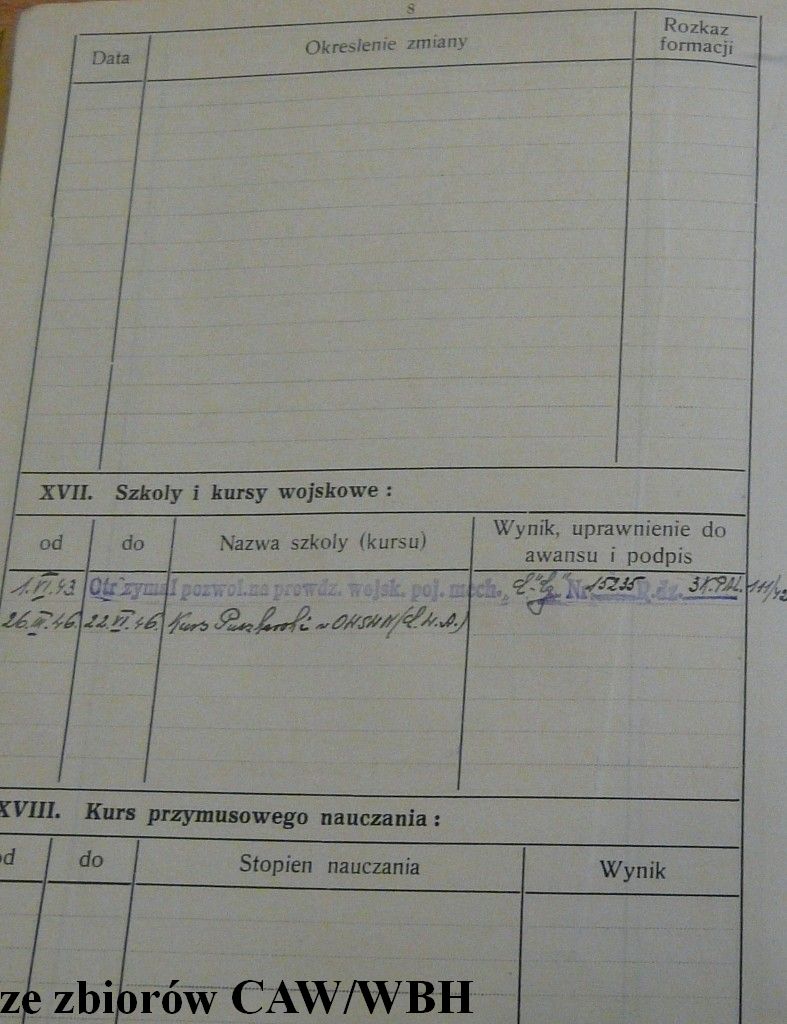 8
Data Okreslenie zmiany Rozkaz formacji
XVII. Szkoly i kursy wojskowe :
od do Nazwa szkoly (kursu) Wynik, uprawnienie do awansu i podpis
1.VI.43 Otrzymal pozwol. na prowdz. wojsk. poj. mech. Nr. 15235 R. dz. 3K.PAL. 111/43
26.III.46. 22.VI.46. Kurs
XVIII. Kurs przymusowego nauczania :
od do Stopien nauczania Wynik
ze zbiorów CAW/WBH